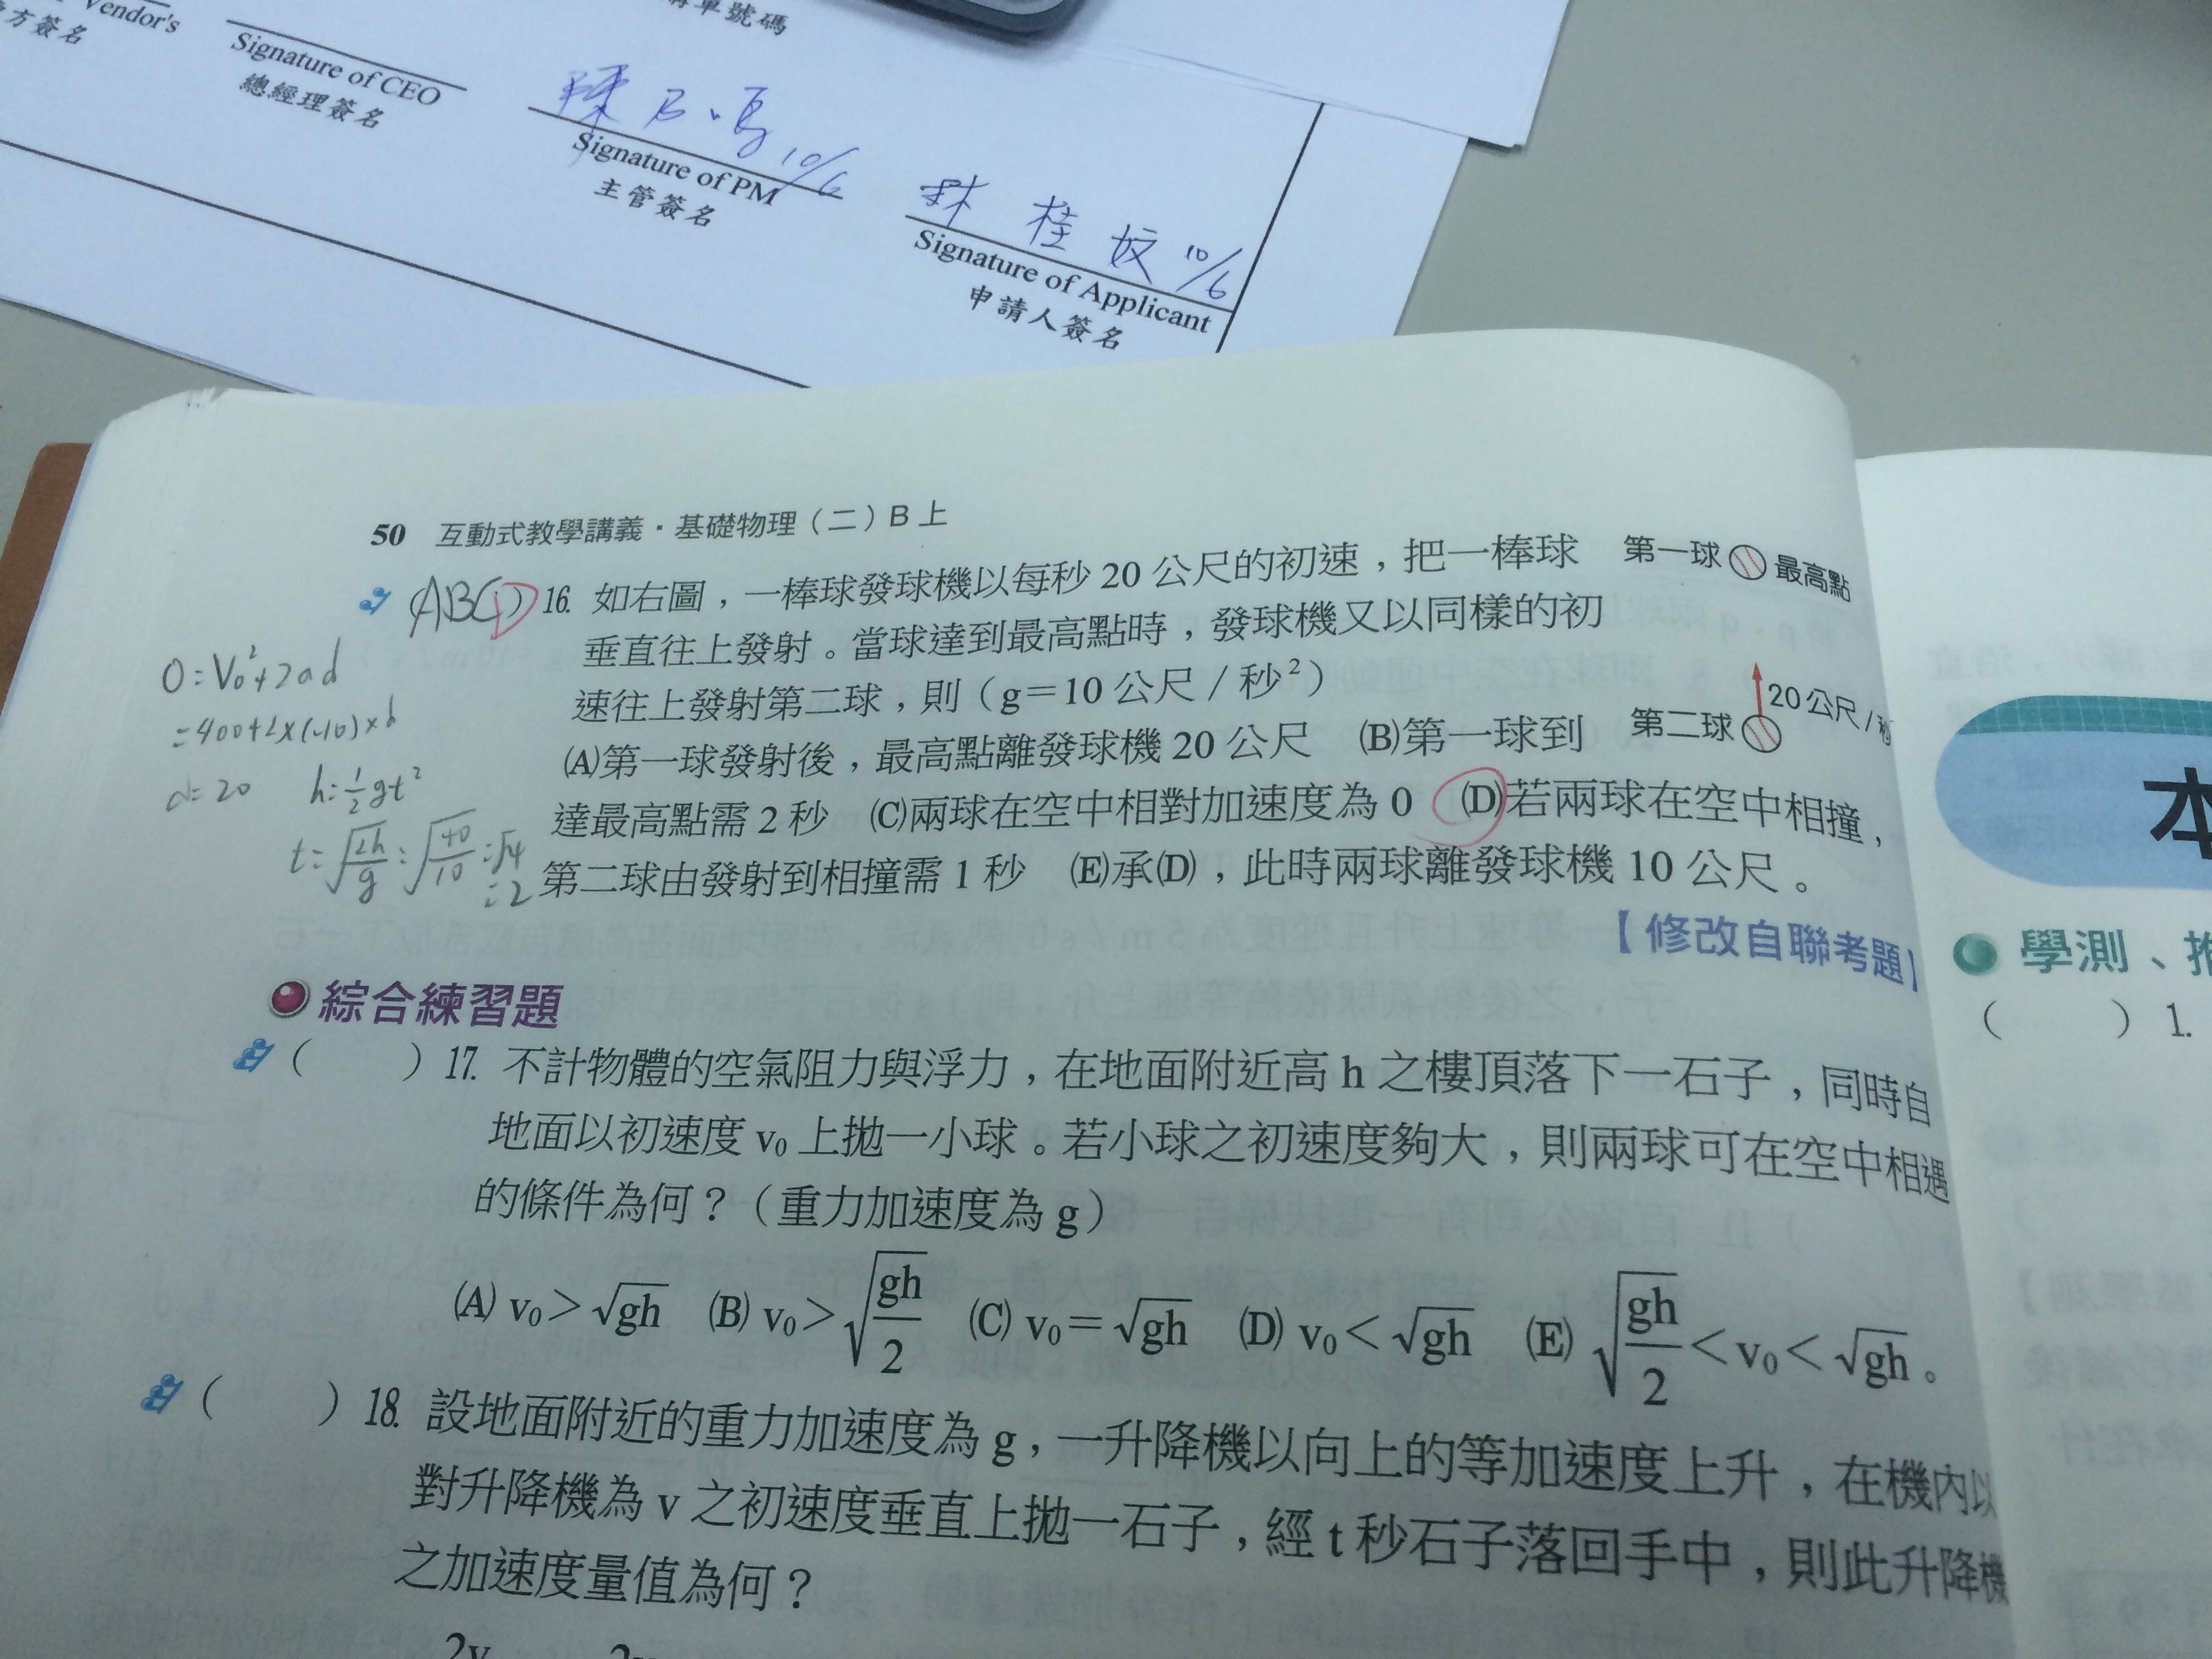 Vendor's
方簽名
Signature of CEO
總經理簽名
單號碼
10/6
Signature of PM
主管簽名
林桂妏 10/6
Signature of Applicant
申請人簽名
50 互動式教學講義・基礎物理(二)B上
ABCD 16. 如右圖,一棒球發球機以每秒 20 公尺的初速,把一棒球
垂直往上發射。當球達到最高點時,發球機又以同樣的初
速往上發射第二球,則(g=10 公尺/秒²)
(A)第一球發射後,最高點離發球機 20 公尺 (B)第一球到
達最高點需 2 秒 (C)兩球在空中相對加速度為 0 (D)若兩球在空中相撞,
第二球由發射到相撞需 1 秒 (E)承(D),此時兩球離發球機 10 公尺。
【修改自聯考題】
第一球 最高點
20 公尺/秒
第二球
0=V₀²+2ad
=400+2×(-10)×d
d=20 h=½gt²
t=√(2h/g)=√(40/10)=√4
=2
綜合練習題
( ) 17. 不計物體的空氣阻力與浮力,在地面附近高 h 之樓頂落下一石子,同時自
地面以初速度 v₀ 上拋一小球。若小球之初速度夠大,則兩球可在空中相遇
的條件為何?(重力加速度為 g)
(A) v₀>√gh (B) v₀>√(gh/2) (C) v₀=√gh (D) v₀<√gh (E) √(gh/2)<v₀<√gh。
( ) 18. 設地面附近的重力加速度為 g,一升降機以向上的等加速度上升,在機內以
對升降機為 v 之初速度垂直上拋一石子,經 t 秒石子落回手中,則此升降機
之加速度量值為何?
2v 2v
本
學測、推
( ) 1.